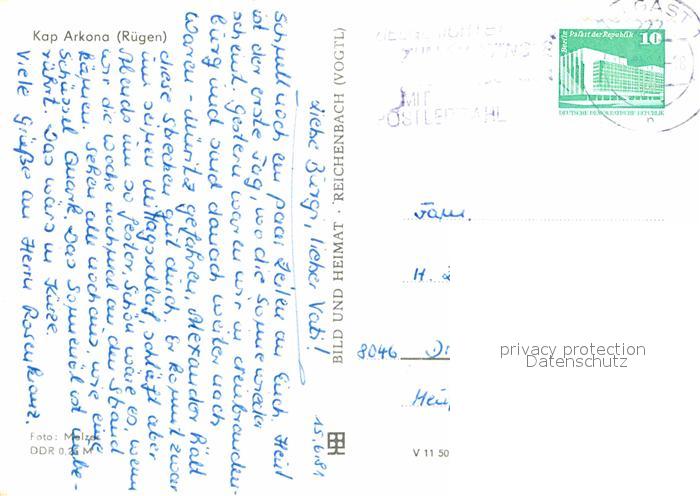 Kap Arkona (Rügen)
15.6.81
Liebe Burgi, lieber Vati!
Schnell noch ein paar Zeilen an Euch. Heut
ist der erste Tag, wo die Sonne wieder
scheint. Gestern waren wir in Neubranden-
burg und sind danach weiter nach
Waren-Müritz gefahren. Alexander hält
diese Strecken gut durch. Er kommt zwar
um seinen Mittagsschlaf, schläft aber
Abends um so fester. Schön wäre es, wenn
wir die Woche nochmal an den Strand
kämen. Sehen alle noch aus, wie eine
Schüssel Quark. Das Sonnenöl ist unbe-
rührt. Das wärs in Kürze.
Viele Grüße an Herrn Rosenkranz.
Foto: Melzer
DDR 0,25 M
BILD UND HEIMAT · REICHENBACH (VOGTL)
MIT
POSTLEITZAHL
Berlin Palast der Republik
10
DEUTSCHE DEMOKRATISCHE REPUBLIK
Fam.
H.
8046
privacy protection
Datenschutz
V 11 50